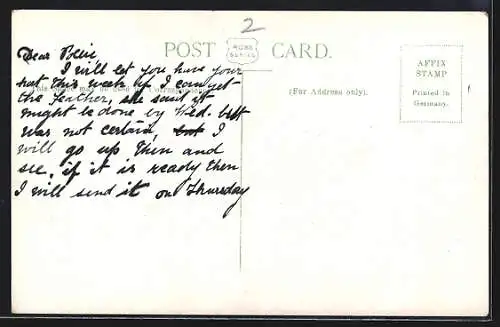 2
POST CARD.
Dear
I will let you have your
hat this week if I can get
the feather, she said it
might be done by Wed. but
was not certain, but I
will go up then and
see, if it is ready then
I will send it on Thursday
(For Address only).
AFFIX
STAMP
Printed in
Germany.